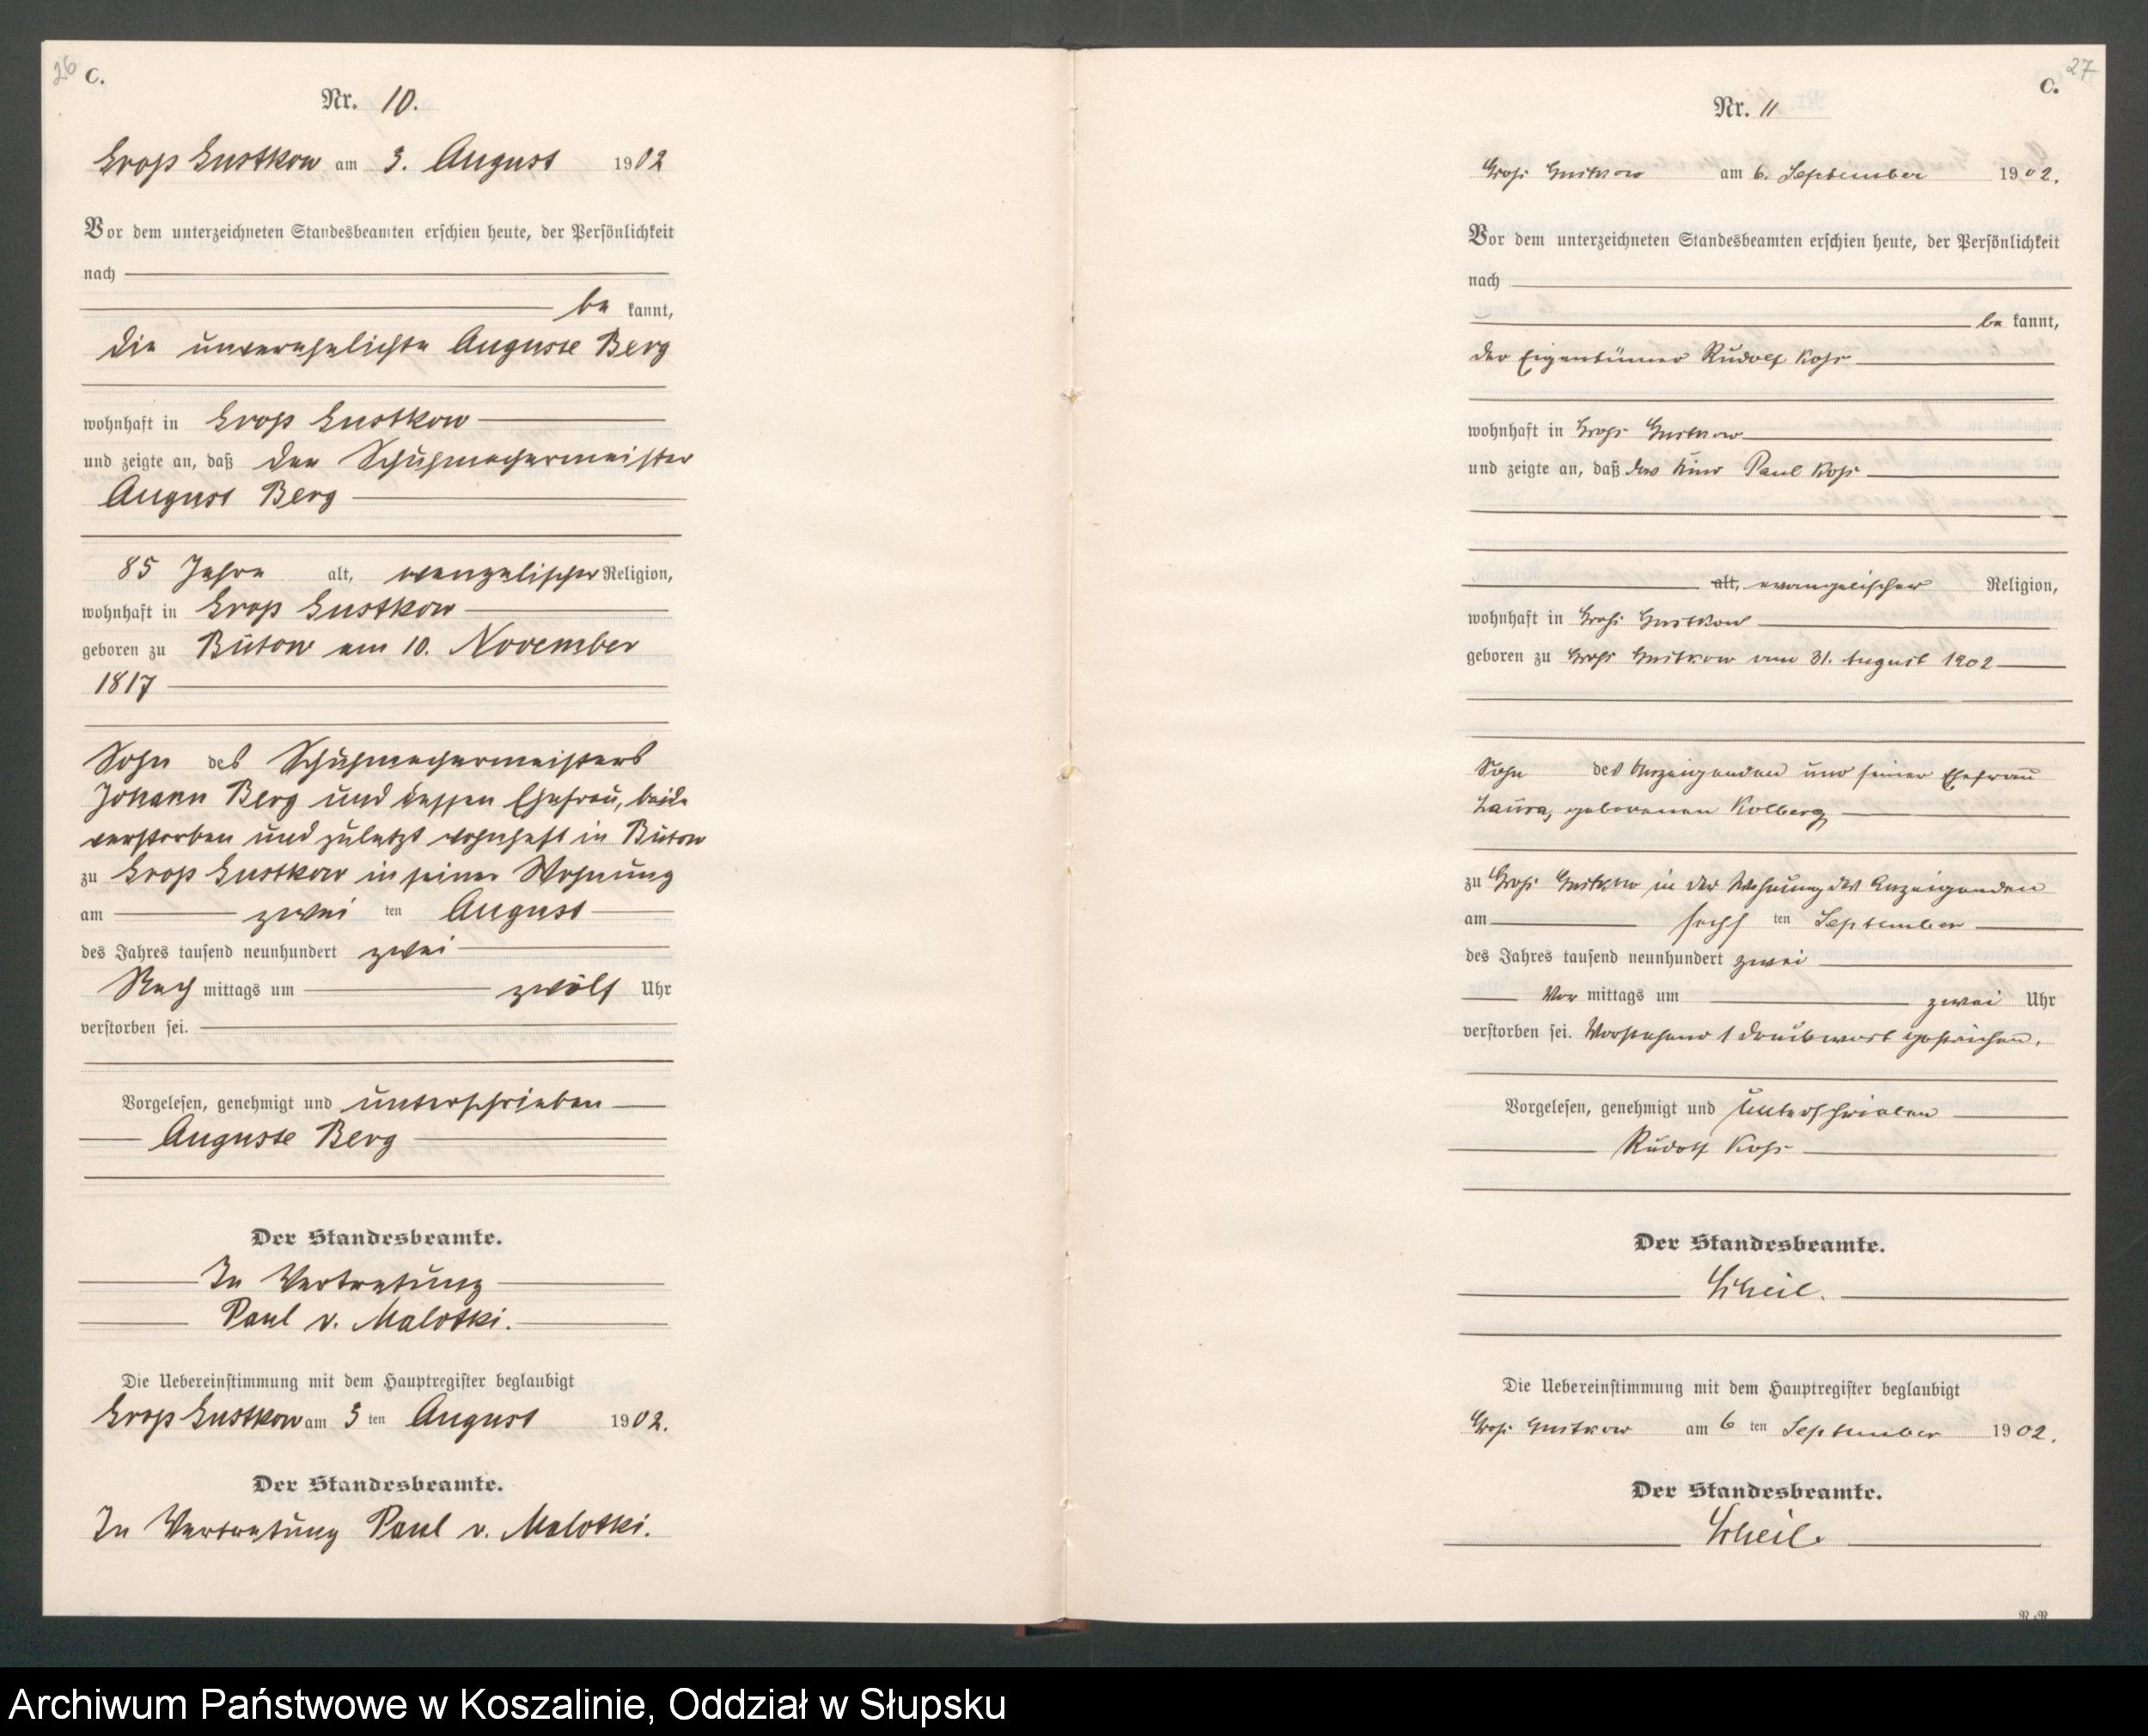 26 C.
Nr. 10.
Gross Gustkow am 3. August 1902
Vor dem unterzeichneten Standesbeamten erschien heute, der Persönlichkeit
nach
be kannt,
die unverehelichte Auguste Berg
wohnhaft in Gross Gustkow
und zeigte an, daß der Schuhmachermeister
August Berg
85 Jahre alt, evangelischer Religion,
wohnhaft in Gross Gustkow
geboren zu Bütow am 10. November
1817
Sohn des Schuhmachermeisters
Johann Berg und dessen Ehefrau, beide
verstorben und zuletzt wohnhaft in Bütow
zu Gross Gustkow in seiner Wohnung
am zwei ten August
des Jahres tausend neunhundert zwei
Nach mittags um zwölf Uhr
verstorben sei.
Vorgelesen, genehmigt und unterschrieben
Auguste Berg
Der Standesbeamte.
In Vertretung
Paul v. Malotki.
Die Uebereinstimmung mit dem Hauptregister beglaubigt
Gross Gustkow am 3 ten August 1902.
Der Standesbeamte.
In Vertretung Paul v. Malotki.
27
C.
Nr. 11
Gross Gustkow am 6. September 1902.
Vor dem unterzeichneten Standesbeamten erschien heute, der Persönlichkeit
nach
be kannt,
der Eigentümer Rudolf Koss
wohnhaft in Gross Gustkow
und zeigte an, daß das Kind Paul Koss
alt, evangelischer Religion,
wohnhaft in Gross Gustkow
geboren zu Gross Gustkow am 31. August 1902
Sohn des Anzeigenden und seiner Ehefrau
Laura, geborenen Kolberg
zu Gross Gustkow in der Wohnung des Anzeigenden
am sechs ten September
des Jahres tausend neunhundert zwei
Vor mittags um zwei Uhr
verstorben sei. Vorstehend 1 Druckwort gestrichen.
Vorgelesen, genehmigt und unterschrieben
Rudolf Koss
Der Standesbeamte.
Scheil.
Die Uebereinstimmung mit dem Hauptregister beglaubigt
Gross Gustkow am 6 ten September 1902.
Der Standesbeamte.
Scheil.
Archiwum Państwowe w Koszalinie, Oddział w Słupsku